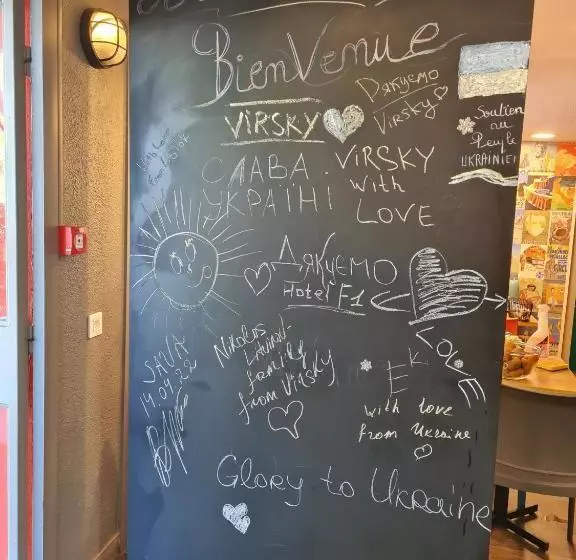 BienVenue
Дякуємо
Virsky
VIRSKY
Soutien
au
Peuple
UKRAINIEN
With Love
СЛАВА
УКРАЇНІ
VIRSKY
with
LOVE
Дякуємо
Hotel F1
LOVE
SAVA
14.04.22
Nikolas
family
from Virsky
EK
with love
from Ukraine
Glory to Ukraine